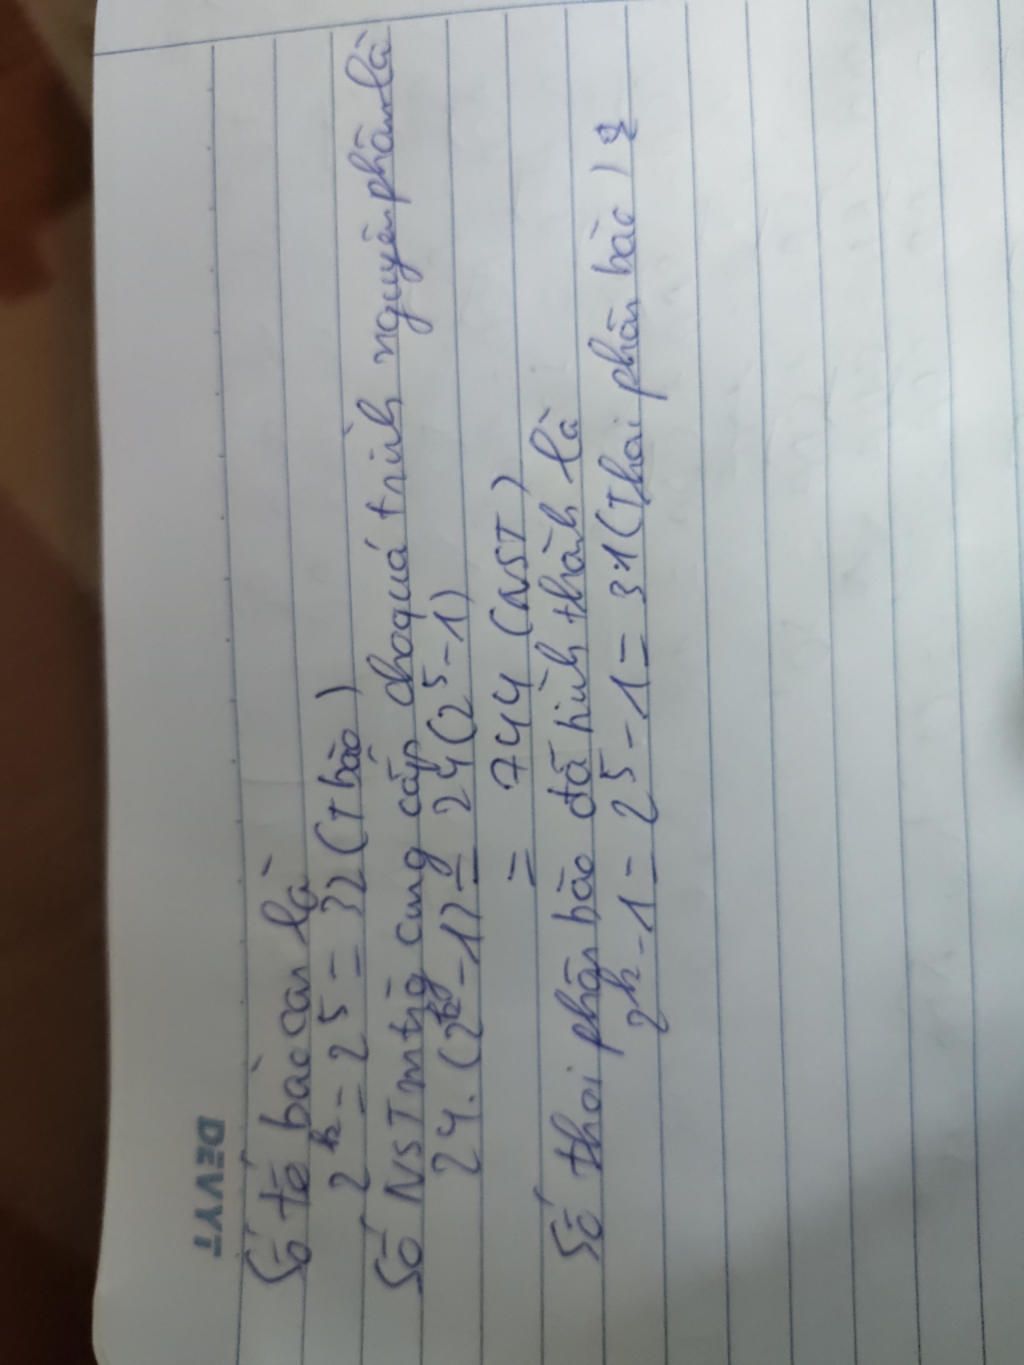 DEVYT
Số tế bào con là
2ᵏ = 2⁵ = 32 (T bào)
Số NST mtg cung cấp cho quá trình nguyên phân là
24.(2ᵏ - 1) = 24(2⁵ - 1)
= 744 (NST)
Số thoi phân bào đã hình thành là
2ᵏ - 1 = 2⁵ - 1 = 31 (Thoi phân bào)